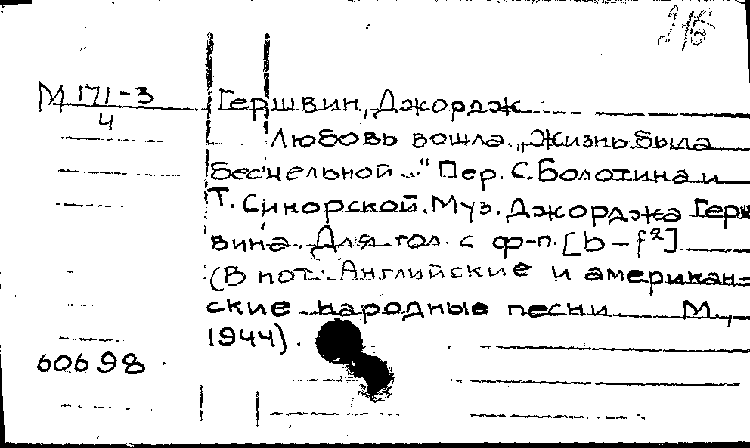 216
М 171-3
4
Гершвин, Джордж
Любовь вошла. „Жизнь была
бесцельной..." Пер. С. Болотина и
Т. Сикорской. Муз. Джорджа Герш
вина. Для гол. с ф-п. [b-f²]
(В нот.: Английские и американ=
ские народные песни М.,
1944).
60698